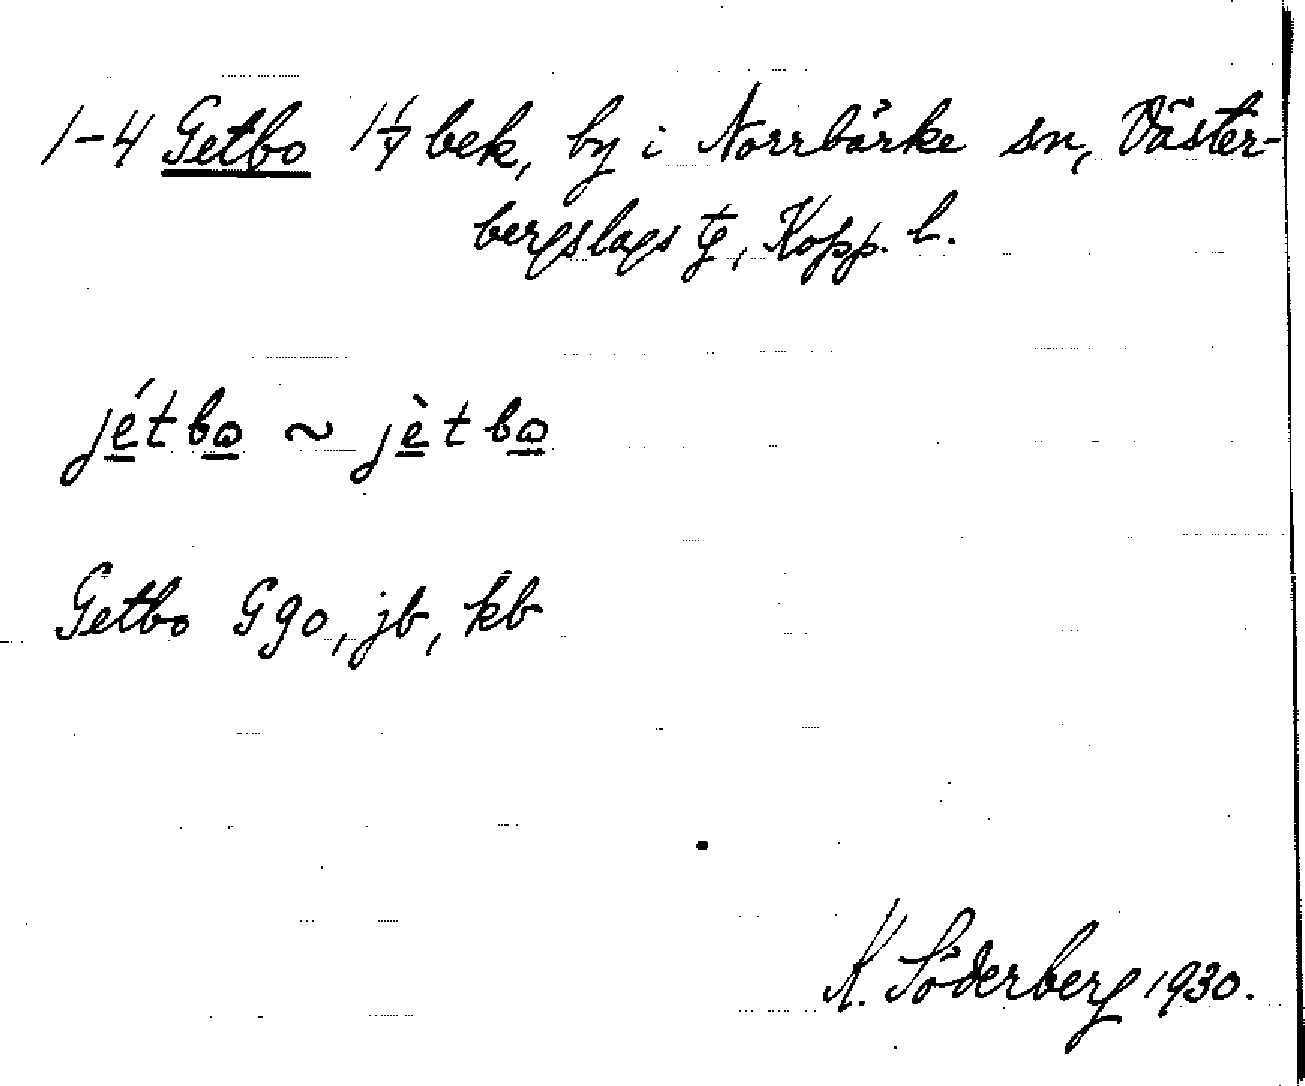 1-4 Getbo 1 1/7 bek, by i Norrbärke sn, Väster-
bergslags tg, Kopp. l.
jétbo ~ jètbo
Getbo Ggo, jb, kb
K. Söderberg 1930.